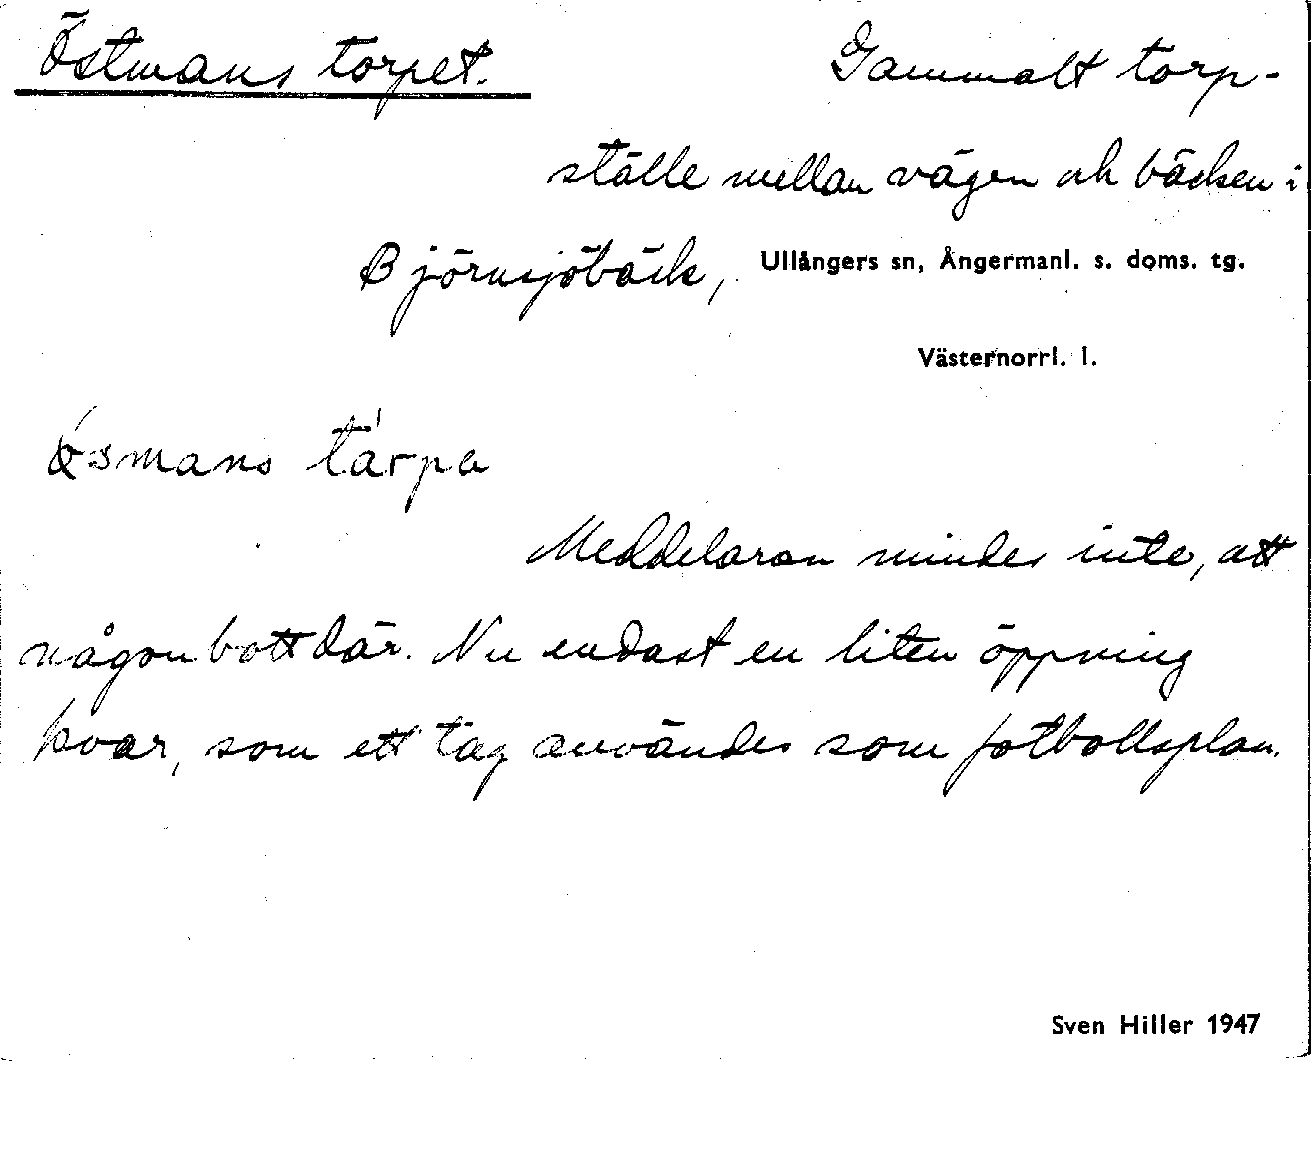 Östmans torpet. Gammalt torp-
ställe mellan vägen och bäcken i
Björnsjöbäck, Ullångers sn, Ångermanl. s. doms. tg.
Västernorrl. l.
tårpa
Meddelaren mindes inte, att
någon bott där. Nu endast en liten öppning
kvar, som ett tag användes som fotbollsplan.
Sven Hiller 1947